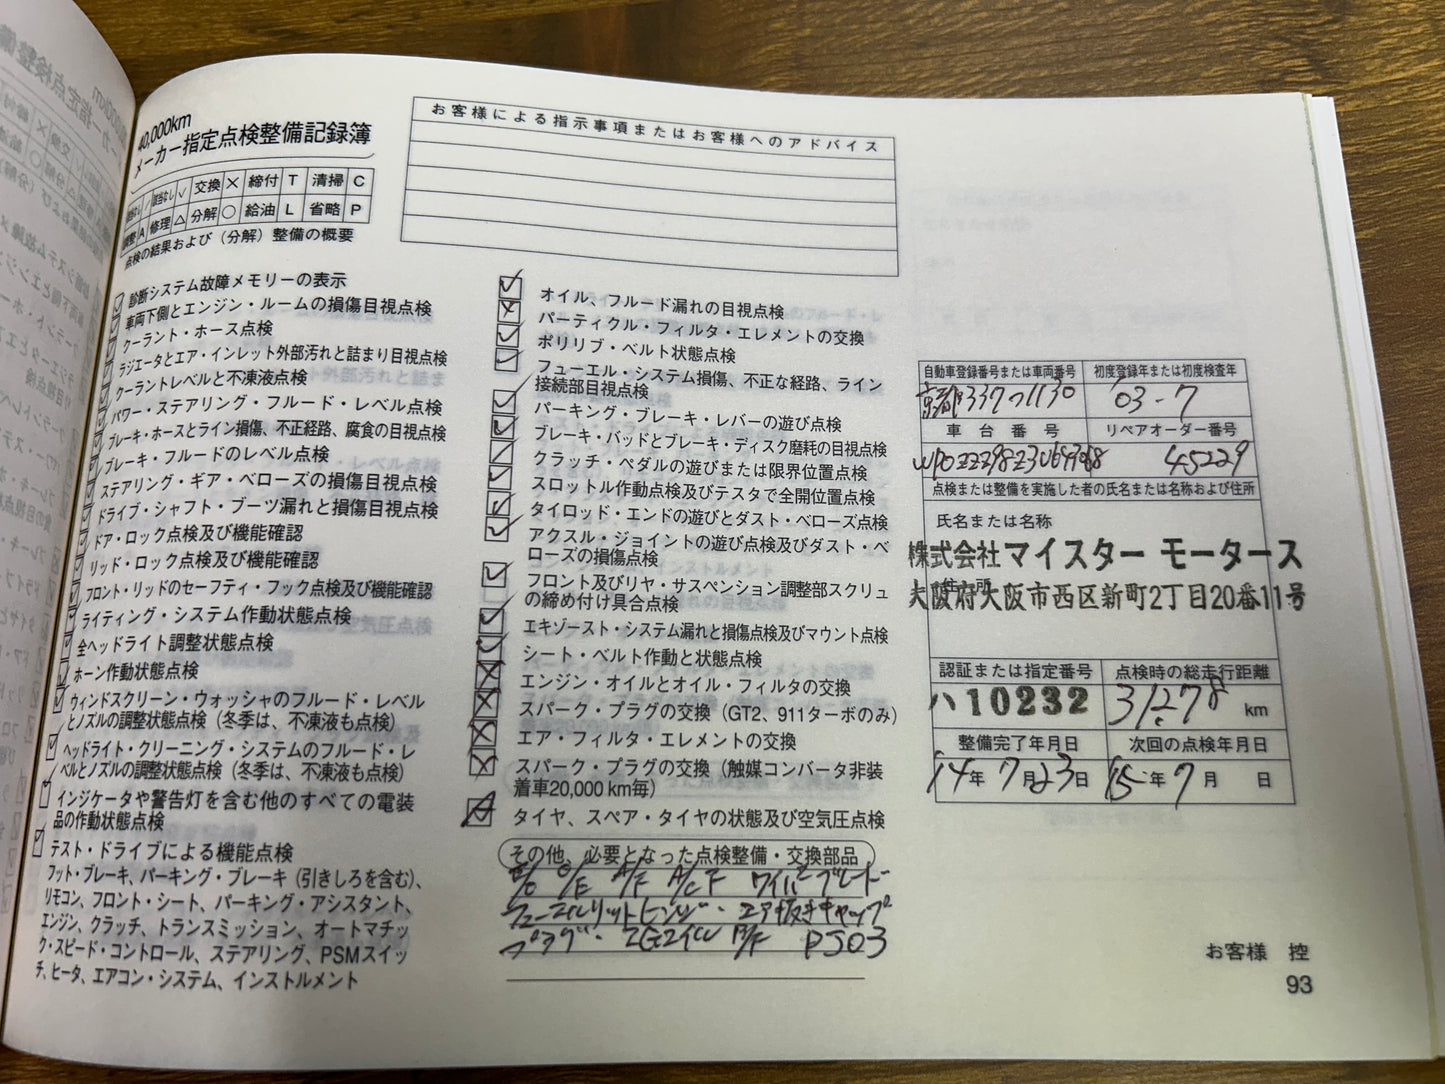 40,000km
メーカー指定点検整備記録簿
交換 × 締付 T 清掃 C
調整 A 修理 △ 分解 ○ 給油 L 省略 P
点検の結果および(分解)整備の概要
お客様による指示事項またはお客様へのアドバイス
診断システム故障メモリーの表示
車両下側とエンジン・ルームの損傷目視点検
クーラント・ホース点検
ラジエータとエア・インレット外部汚れと詰まり目視点検
クーラントレベルと不凍液点検
パワー・ステアリング・フルード・レベル点検
ブレーキ・ホースとライン損傷、不正経路、腐食の目視点検
ブレーキ・フルードのレベル点検
ステアリング・ギア・ベローズの損傷目視点検
ドライブ・シャフト・ブーツ漏れと損傷目視点検
ドア・ロック点検及び機能確認
リッド・ロック点検及び機能確認
フロント・リッドのセーフティ・フック点検及び機能確認
ライティング・システム作動状態点検
全ヘッドライト調整状態点検
ホーン作動状態点検
ウィンドスクリーン・ウォッシャのフルード・レベル
とノズルの調整状態点検(冬季は、不凍液も点検)
ヘッドライト・クリーニング・システムのフルード・レ
ベルとノズルの調整状態点検(冬季は、不凍液も点検)
インジケータや警告灯を含む他のすべての電装
品の作動状態点検
テスト・ドライブによる機能点検
フット・ブレーキ、パーキング・ブレーキ(引きしろを含む)、
リモコン、フロント・シート、パーキング・アシスタント、
エンジン、クラッチ、トランスミッション、オートマチッ
ク・スピード・コントロール、ステアリング、PSMスイッ
チ、ヒータ、エアコン・システム、インストルメント
オイル、フルード漏れの目視点検
パーティクル・フィルタ・エレメントの交換
ポリリブ・ベルト状態点検
フューエル・システム損傷、不正な経路、ライン
接続部目視点検
パーキング・ブレーキ・レバーの遊び点検
ブレーキ・パッドとブレーキ・ディスク磨耗の目視点検
クラッチ・ペダルの遊びまたは限界位置点検
スロットル作動点検及びテスタで全開位置点検
タイロッド・エンドの遊びとダスト・ベローズ点検
アクスル・ジョイントの遊び点検及びダスト・ベ
ローズの損傷点検
フロント及びリヤ・サスペンション調整部スクリュ
の締め付け具合点検
エキゾースト・システム漏れと損傷点検及びマウント点検
シート・ベルト作動と状態点検
エンジン・オイルとオイル・フィルタの交換
スパーク・プラグの交換(GT2、911ターボのみ)
エア・フィルタ・エレメントの交換
スパーク・プラグの交換(触媒コンバータ非装
着車20,000 km毎)
タイヤ、スペア・タイヤの状態及び空気圧点検
その他、必要となった点検整備・交換部品
E/O O/E A/F A/C F ワイパーブレード
フューエルリットヒンジ・エア抜きキャップ
プラグ・ B/F
自動車登録番号または車両番号 初度登録年または初度検査年
京都337つ1130 03-7
車台番号 リペアオーダー番号
45229
点検または整備を実施した者の氏名または名称および住所
氏名または名称
株式会社マイスター モータース
住所
大阪府大阪市西区新町2丁目20番11号
認証または指定番号 点検時の総走行距離
ハ10232 31278 km
整備完了年月日 次回の点検年月日
14年7月23日 15年7月 日
お客様 控
93